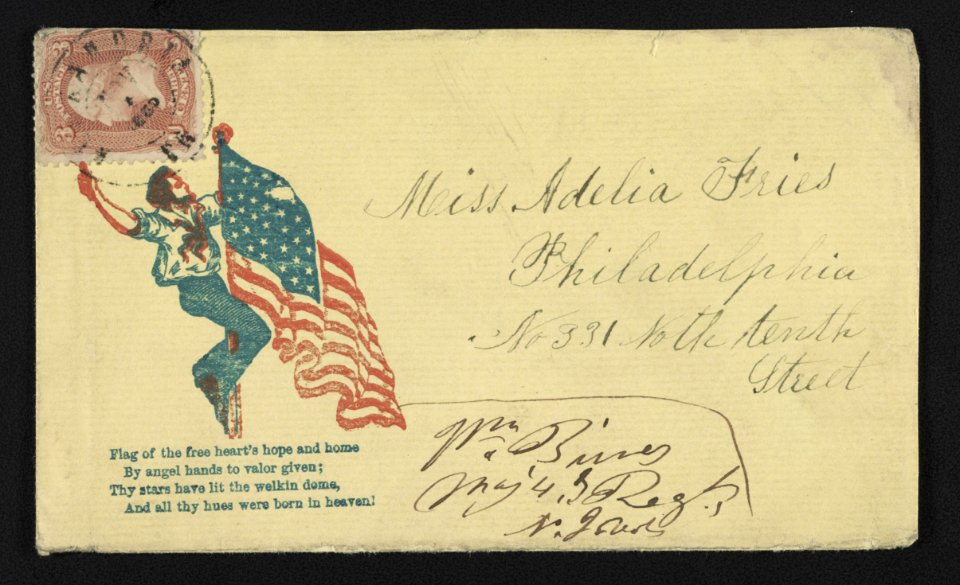 Miss Adelia Fries
Philadelphia
No 331 Noth tenth
Street
Flag of the free heart's hope and home
By angel hands to valor given;
Thy stars have lit the welkin dome,
And all thy hues were born in heaven!
Wm
Maj 4 Regt
N. Jersey